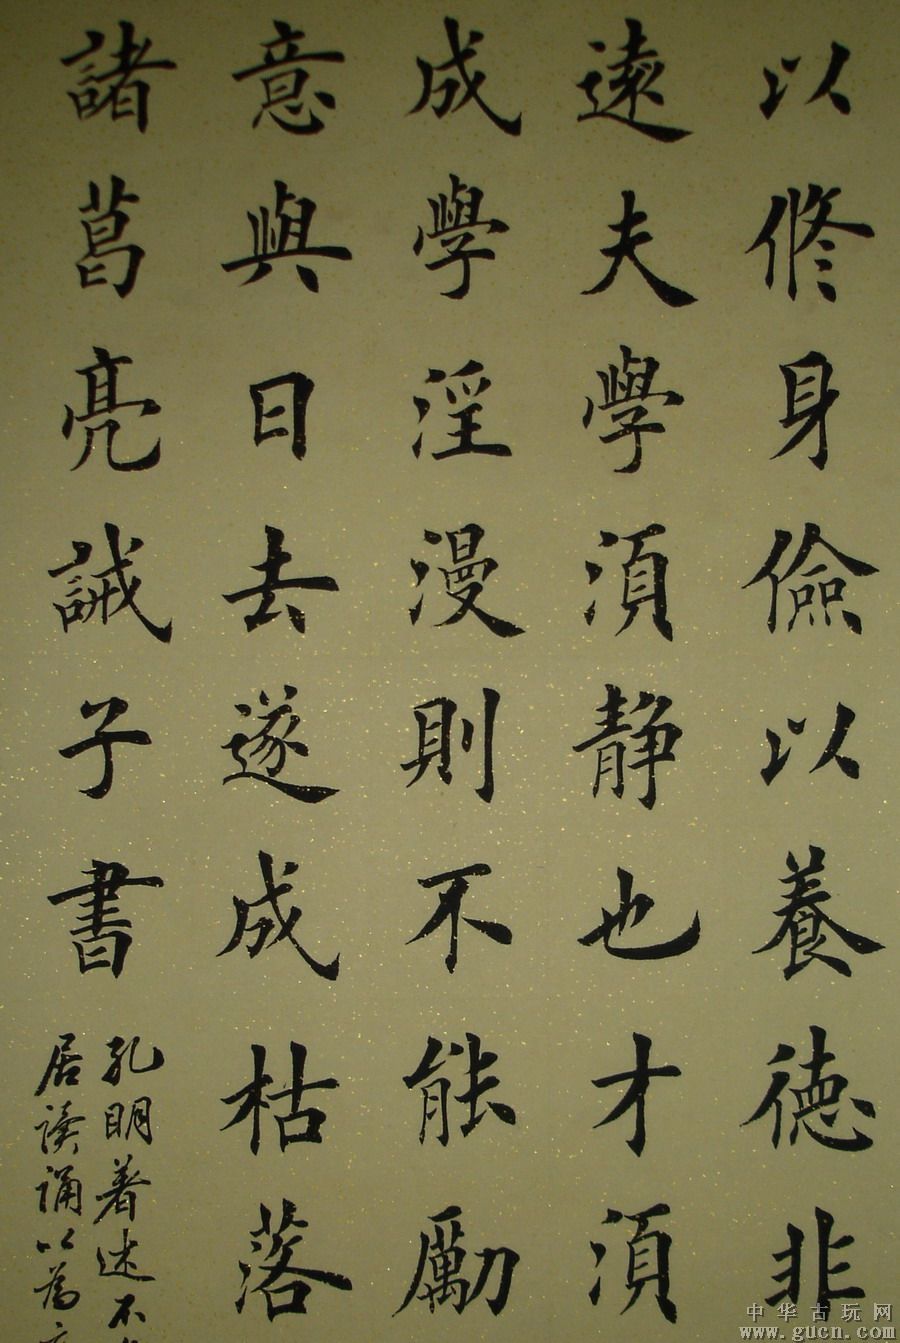 以修身儉以養德非
遠夫學須静也才須
成學淫漫則不能勵
意與日去遂成枯落
諸葛亮誡子書
孔明着述不
居读诵以為
中华古玩网
www.gucn.com